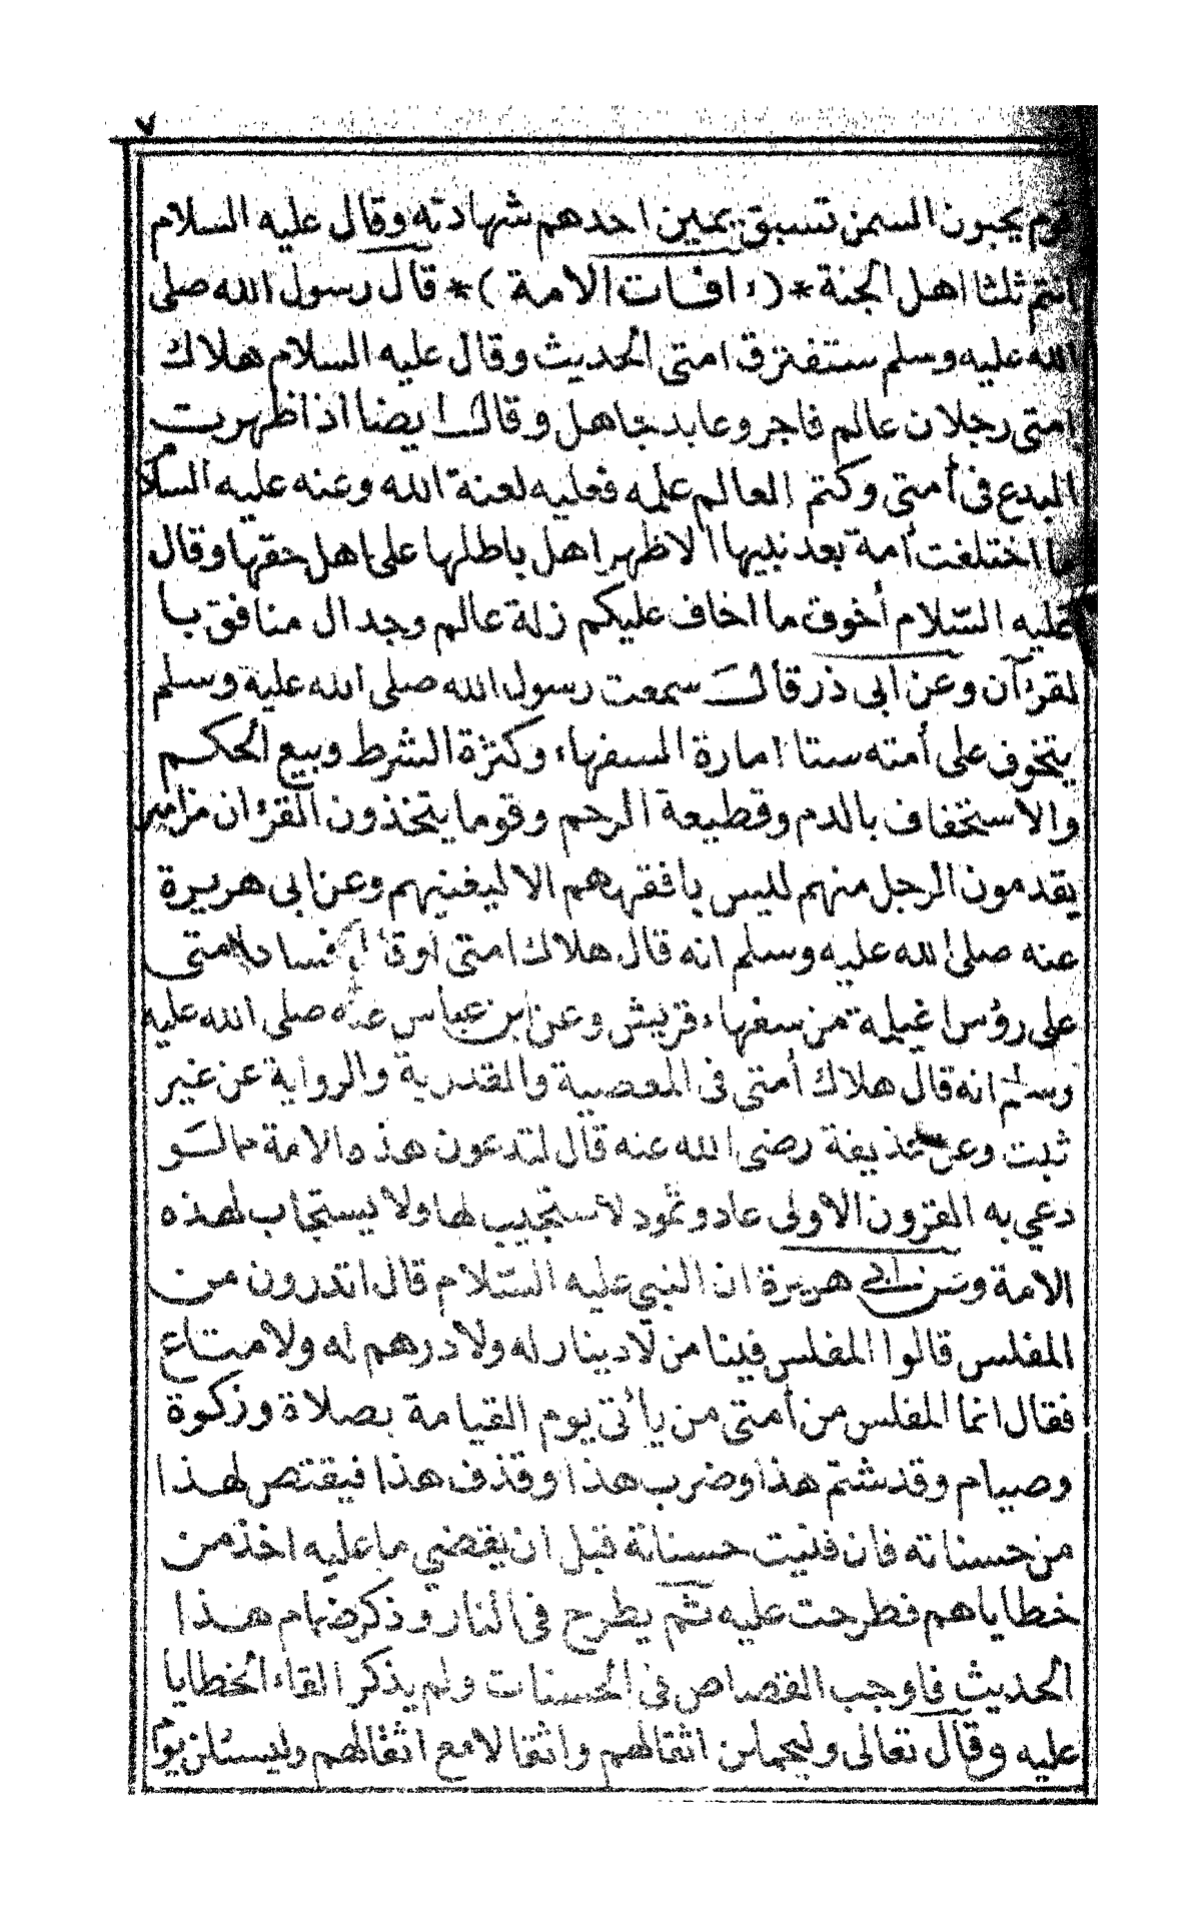 ٧
قوم يحبون السمن تسبق يمين احدهم شهادته وقال عليه السلام
انتم ثلثا اهل الجنة *( افات الامة )* قال رسول الله صلى
الله عليه وسلم ستفترق امتى الحديث وقال عليه السلام هلاك
امتى رجلان عالم فاجر وعابد جاهل وقال ايضا اذا ظهرت
البدع فى أمتى وكتم العالم علمه فعليه لعنة الله وعنه عليه السلام
ما اختلفت أمة بعد نبيها الا ظهر اهل باطلها على اهل حقها وقال
عليه السّلام أخوف ما اخاف عليكم زلة عالم وجدال منافق با
لقرءآن وعن ابى ذر قال سمعت رسول الله صلى الله علية وسلم
يتخوف على أمته ستا امارة السفهاء وكثرة الشرط وبيع الحكم
والاستخفاف بالدم وقطيعة الرحم وقوما يتخذون القرءان مزامير
يقدمون الرجل منهم ليس بافقههم الا ليغنيهم وعن ابى هريرة
عنه صلى الله عليه وسلم انه قال هلاك امتى اوقال فساد امتى
على رؤس اغيلمة من سفهاء قريش وعن ابن عباس عنه صلى الله عليه
وسلم انه قال هلاك أمتى فى المعصية والقدرية والرواية عن غير
ثبت وعن حذيفة رضى الله عنه قال لتدعون هذه الامة بما لسو
دعي به القرون الاولى عاد وثمود لاستجيب لها ولا يستجاب لهذه
الامة وعن ابي هريرة ان النبي عليه السّلام قال اتدرون من
المفلس قالوا المفلس فينا من لا دينار له ولا درهم له ولا متاع
فقال انما المفلس من أمتى من يأتى يوم القيامة بصلاة وزكوة
وصيام وقد شتم هذا وضرب هذا وقذف هذا فيقتص لهذا
من حسناته فان فنيت حسناته قبل ان يقضي ما عليه اخذ من
خطاياهم فطرحت عليه ثم يطرح فى النار وذكر ضهام هذا
الحديث فاوجب القصاص فى الحسنات ولم يذكر القاء الخطايا
عليه وقال تعالى وليحملن اثقالهم واثقالا مع اثقالهم وليسئلن يوم